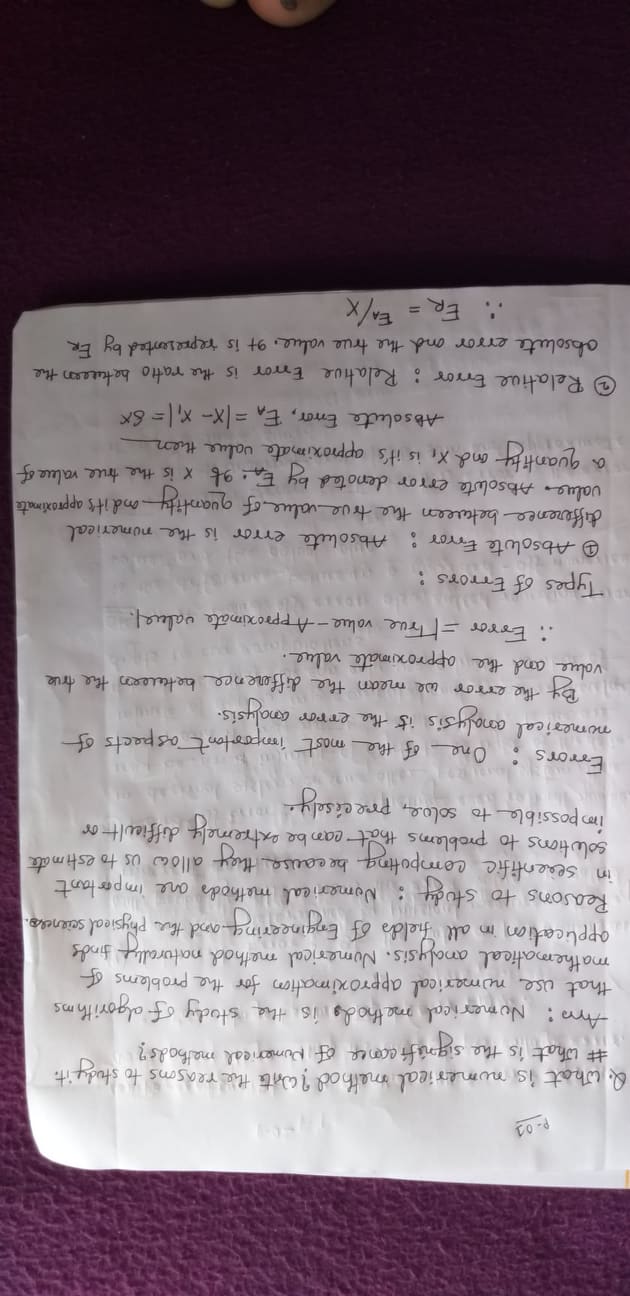 P-01
Q. What is numerical method? Write the reasons to study it.
# What is the significance of Numerical methods?
Ans: Numerical methods is the study of algorithms
that use numerical approximation for the problems of
mathematical analysis. Numerical method naturally finds
application in all fields of Engineering and the physical sciences.
Reasons to study: Numerical methods are important
in scientific computing because they allow us to estimate
solutions to problems that can be extremely difficult or
impossible to solve, precisely.
Errors: One of the most important aspects of
numerical analysis is the error analysis.
By the error we mean the difference between the true
value and the approximate value.
∴ Error = |True value - Approximate value|.
Types of Errors:
① Absolute Error: Absolute error is the numerical
difference between the true value of quantity and it's approximate
value. Absolute error denoted by E_A. If X is the true value of
a quantity and X₁ is it's approximate value then
Absolute Error, E_A = |X - X₁| = δX
② Relative Error: Relative Error is the ratio between the
absolute error and the true value. It is represented by E_R
∴ E_R = E_A/X